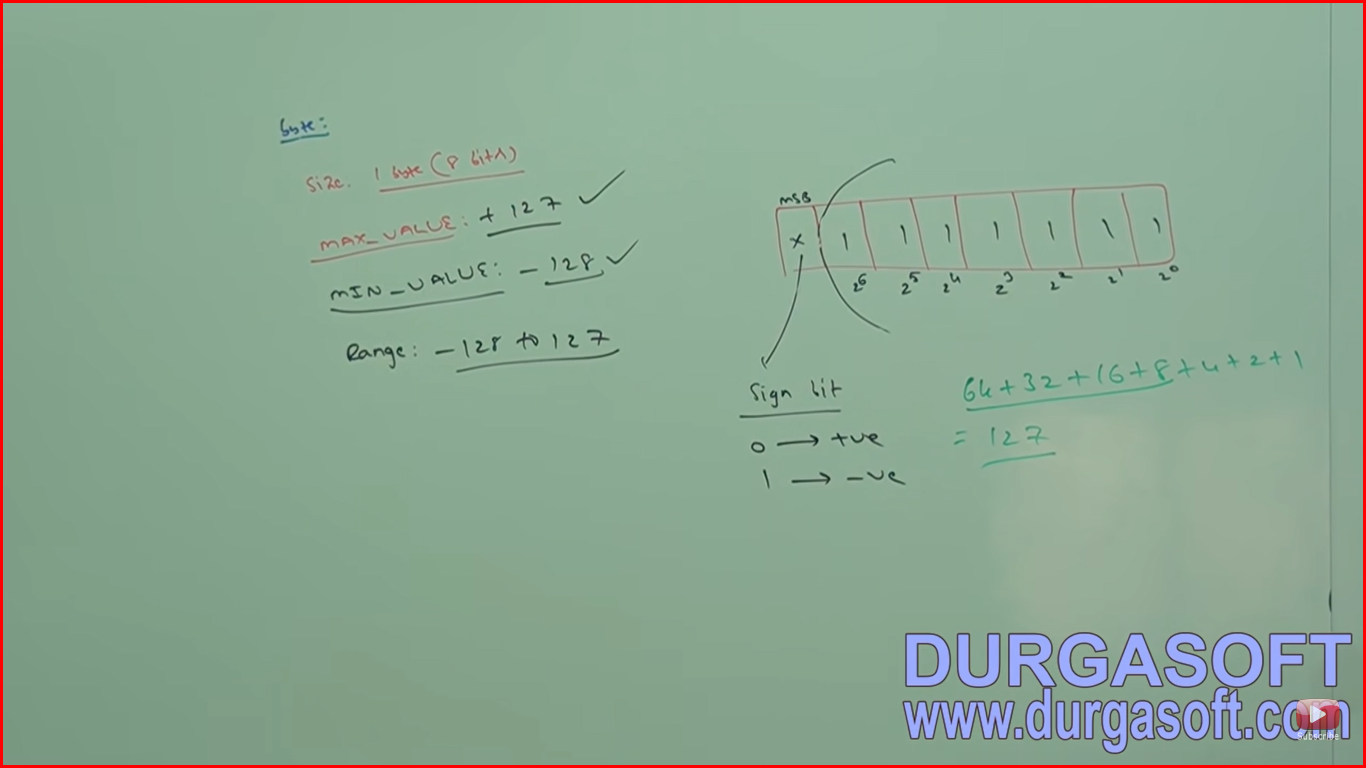 byte:
Size: 1 byte (8 bits)
MAX_VALUE: + 127 ✓
MIN_VALUE: - 128 ✓
Range: - 128 to 127
MSB
x 1 1 1 1 1 1 1
2⁶ 2⁵ 2⁴ 2³ 2² 2¹ 2⁰
Sign bit
0 → +ve
1 → -ve
64+32+16+8+4+2+1
= 127
DURGASOFT
www.durgasoft.com
Subscribe